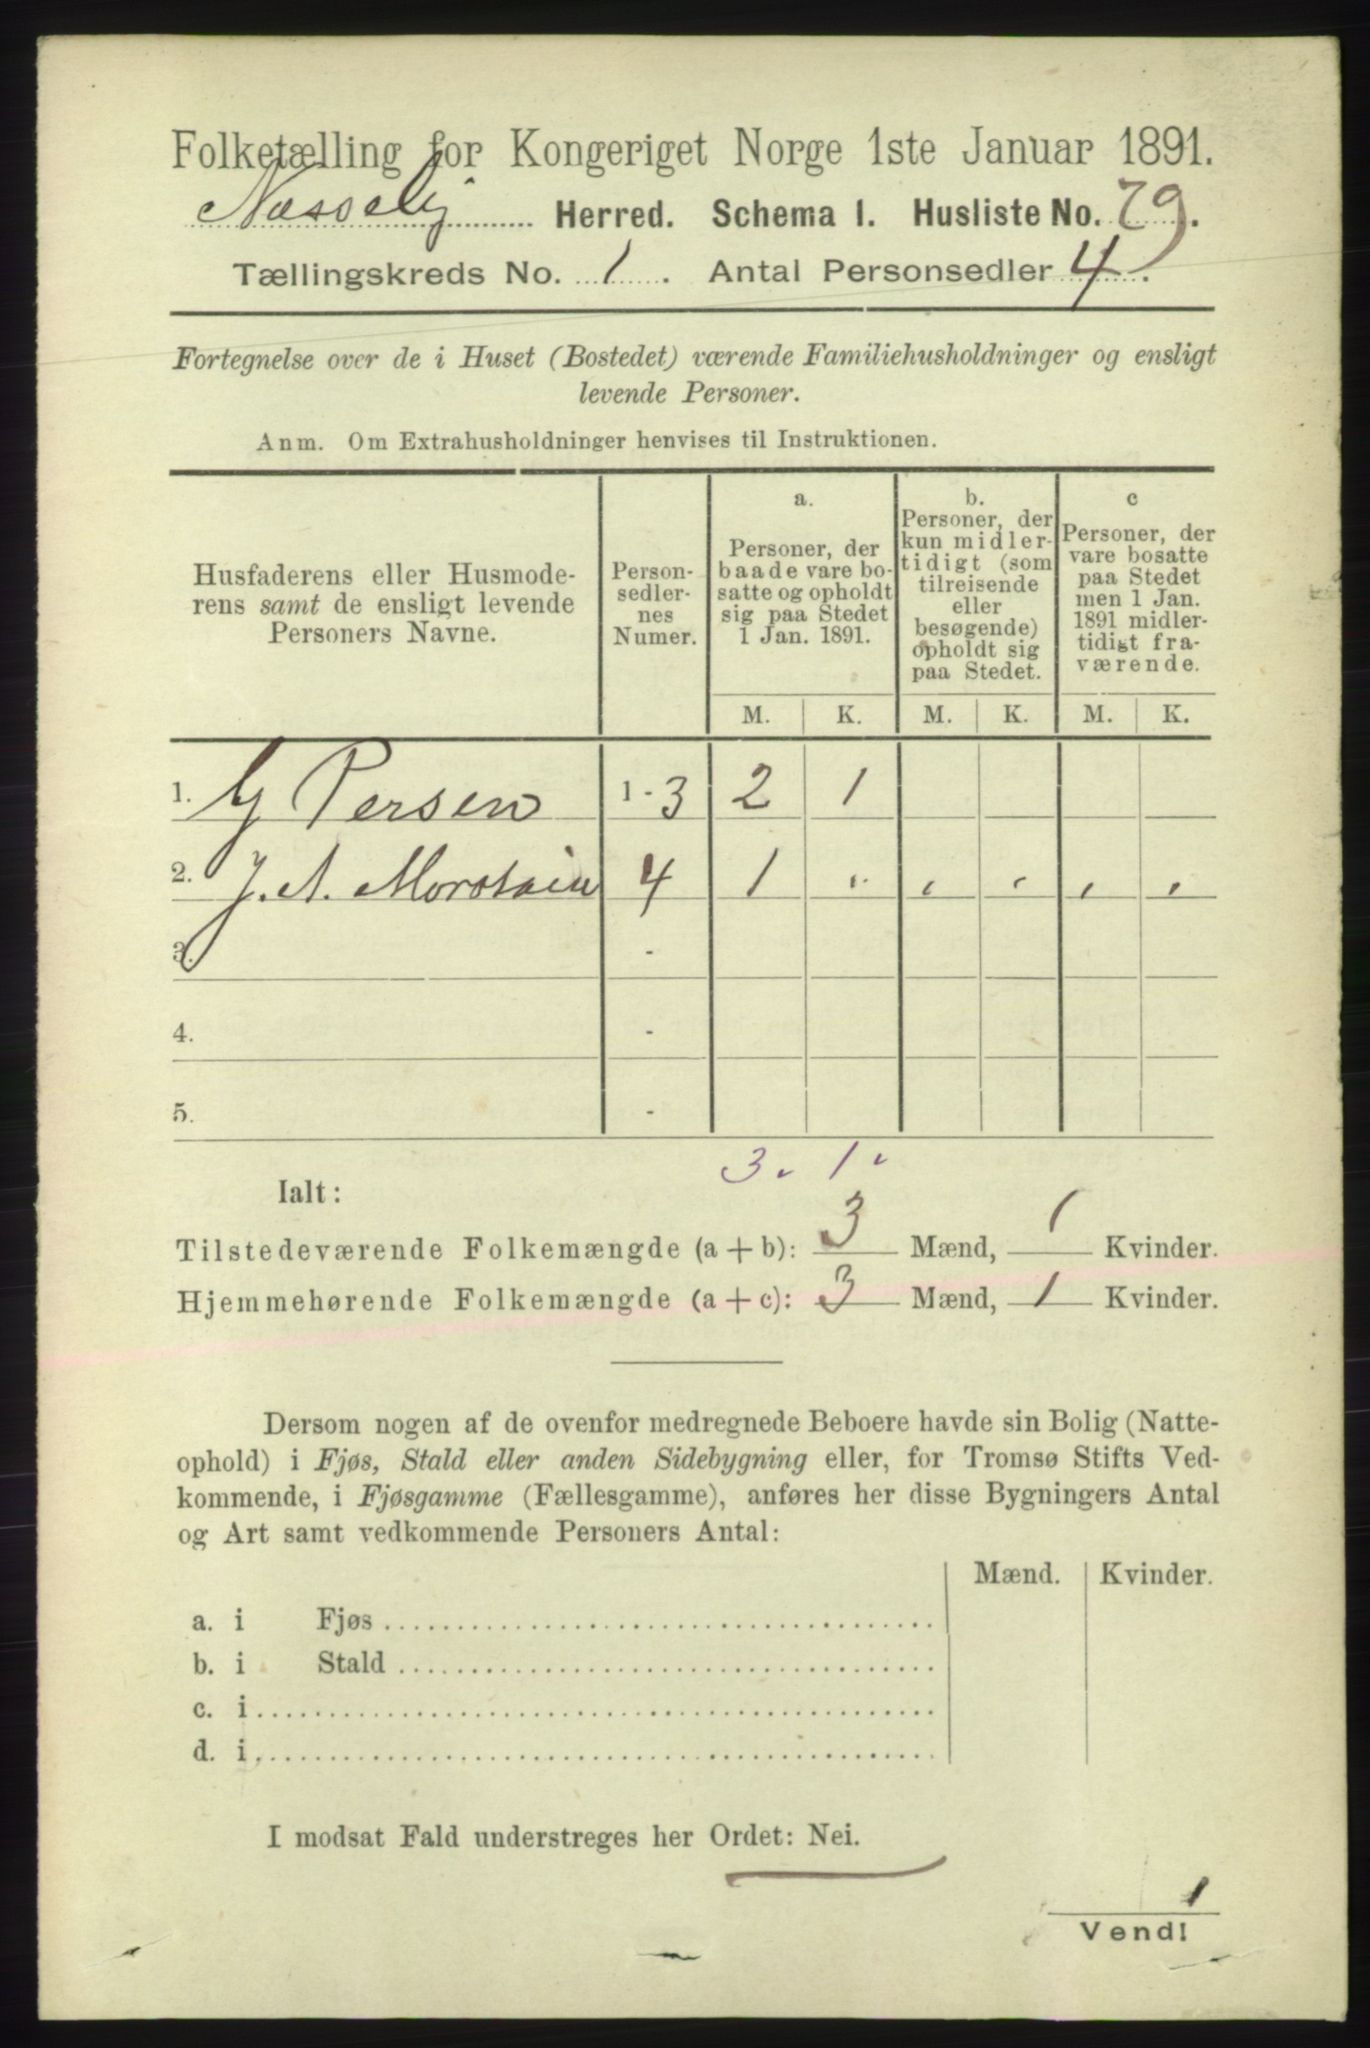 Folketælling for Kongeriget Norge 1ste Januar 1891.
Næsseby Herred. Schema 1. Husliste No. 79.
Tællingskreds No. 1. Antal Personsedler 4.
Fortegnelse over de i Huset (Bostedet) værende Familiehusholdninger og ensligt
levende Personer.
Anm. Om Extrahusholdninger henvises til Instruktionen.
Husfaderens eller Husmode-
rens samt de ensligt levende
Personers Navne.
Person-
sedler-
nes
Numer.
a.
Personer, der
baade vare bo-
satte og opholdt
sig paa Stedet
1 Jan. 1891.
b.
Personer, der
kun midler-
tidigt (som
tilreisende
eller
besøgende)
opholdt sig
paa Stedet.
c
Personer, der
vare bosatte
paa Stedet
men 1 Jan.
1891 midler-
tidigt fra-
værende.
M. K. M. K. M. K.
1. Persen 1-3 2 1
2. J. A. 4 1 " " " " "
3. -
4. -
5. -
3. 1.
Ialt:
Tilstedeværende Folkemængde (a + b): 3 Mænd, 1 Kvinder.
Hjemmehørende Folkemængde (a + c): 3 Mænd, 1 Kvinder.
Dersom nogen af de ovenfor medregnede Beboere havde sin Bolig (Natte-
ophold) i Fjøs, Stald eller anden Sidebygning eller, for Tromsø Stifts Ved-
kommende, i Fjøsgamme (Fællesgamme), anføres her disse Bygningers Antal
og Art samt vedkommende Personers Antal:
Mænd. Kvinder.
a. i Fjøs
b. i Stald
c. i
d. i
I modsat Fald understreges her Ordet: Nei.
1
Vend!